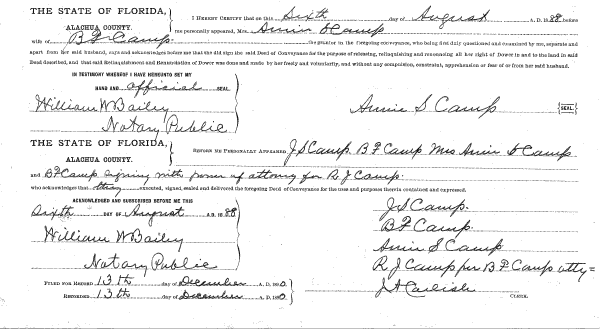 THE STATE OF FLORIDA,
ALACHUA COUNTY.
I HEREBY CERTIFY that on this Sixth day of August A. D. 1888, before
me personally appeared, Mrs. Annie S Camp
wife of B F Camp the grantor in the foregoing conveyance, who being first duly questioned and examined by me, separate and
apart from her said husband, says and acknowledges before me that she did sign the said Deed of Conveyance for the purpose of releasing, relinquishing and renouncing all her right of Dower in and to the land in said
Deed described, and that said Relinquishment and Renunciation of Dower was done and made by her freely and voluntarily, and without any compulsion, constraint, apprehension or fear of or from her said husband.
IN TESTIMONY WHEREOF I HAVE HEREUNTO SET MY
HAND AND official SEAL
William W Bailey
Notary Public
Annie S Camp SEAL
THE STATE OF FLORIDA,
ALACHUA COUNTY.
BEFORE ME PERSONALLY APPEARED J S Camp B F Camp Mrs Annie S Camp
and B F Camp signing with power of attorney for R J Camp
who acknowledges that they executed, signed, sealed and delivered the foregoing Deed of Conveyance for the uses and purposes therein contained and expressed.
ACKNOWLEDGED AND SUBSCRIBED BEFORE ME THIS
Sixth DAY OF August A.D. 1888
William W Bailey
Notary Public
J S Camp
B F Camp
Annie S Camp
R J Camp per B F Camp atty=
FILED FOR RECORD 13th day of December A. D. 1880
RECORDED 13th day of December A.D. 1880
J A Carlisle CLERK.